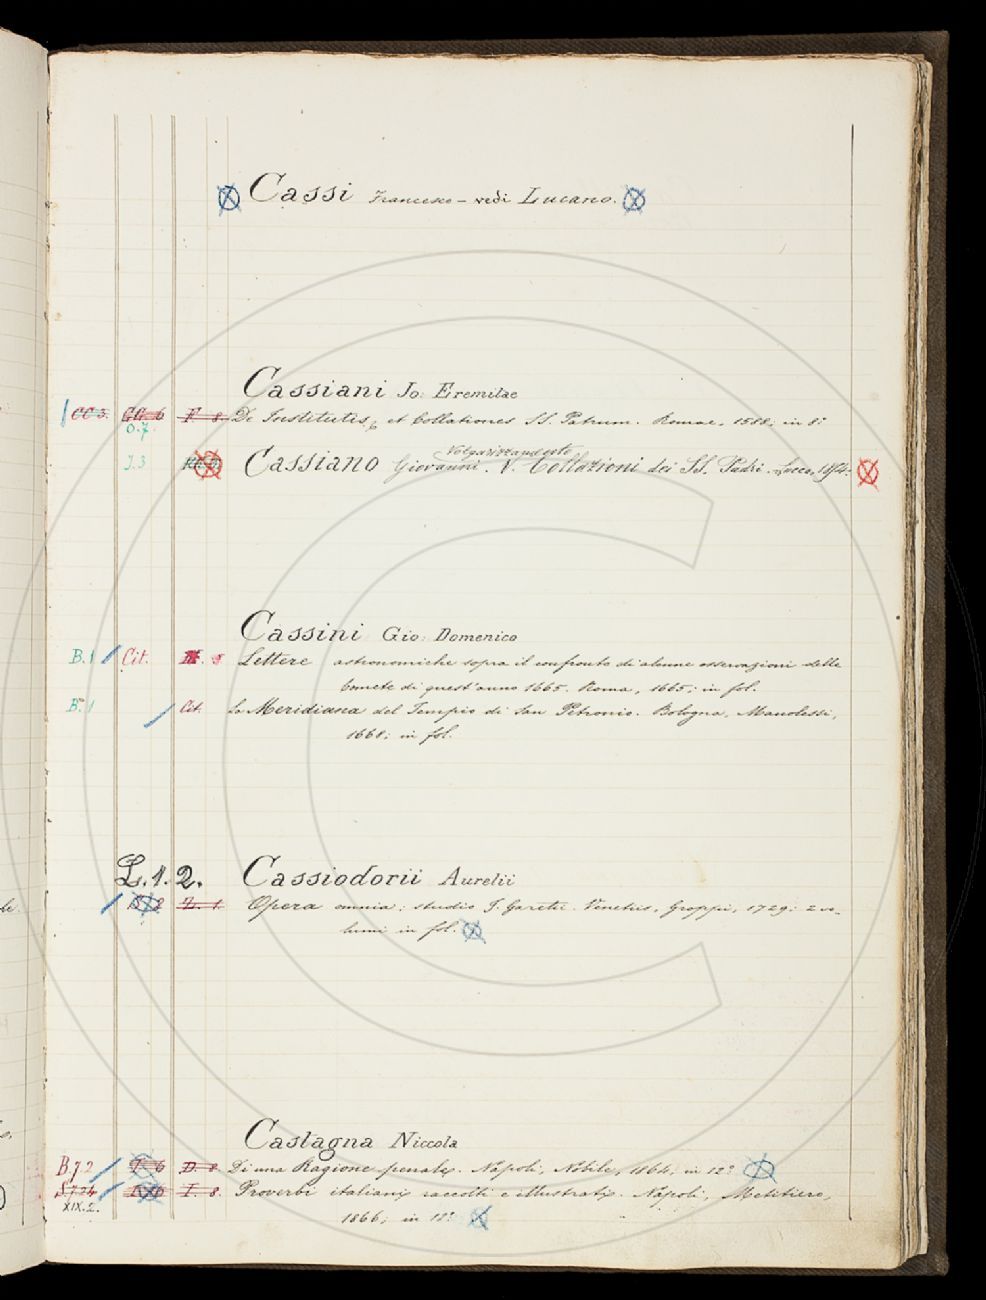 Cassi Francesco - vedi Lucano.
Cassiani Jo: Eremitae
CC 3. F. 8. De Institutis, et Collationes SS. Patrum. Romae, 1588; in 8º
O.7.
Volgarizzamento
J.3 Cassiano Giovanni. V. Collazioni dei SS. Padri. Lucca, 1854.
Cassini Gio: Domenico
B.1 Cit. Lettere astronomiche sopra il confronto di alcune osservazioni delle
Comete di quest'anno 1665. Roma, 1665; in fol.
B.1 Cit. La Meridiana del Tempio di San Petronio. Bologna, Manolessi,
in fol.
L.1.2. Cassiodorii Aurelii
Z. 1. Opera omnia; studio J. Garetii. Venetiis, Groppi, 1729; 2 vo-
lumi in fol.
Castagna Niccola
B72 D. 8. Di una Ragione penale. Napoli, Nobile, 1864; in 12º
I. 8. Proverbi italiani raccolti e illustrati. Napoli, Metitiero,
XIX.2. 1866; in
C